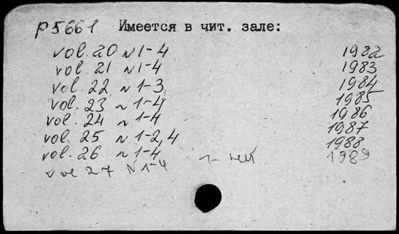 P5661 Имеется в чит. зале:
vol. 20 N 1-4 1982
vol. 21 N 1-4 1983
vol. 22 N 1-3 1984
vol. 23 N 1-4 1985
vol. 24 N 1-4 1986
vol. 25 N 1-2,4 1987
vol. 26 N 1-4 1988
vol 27 N 1-4 1- нет 1989